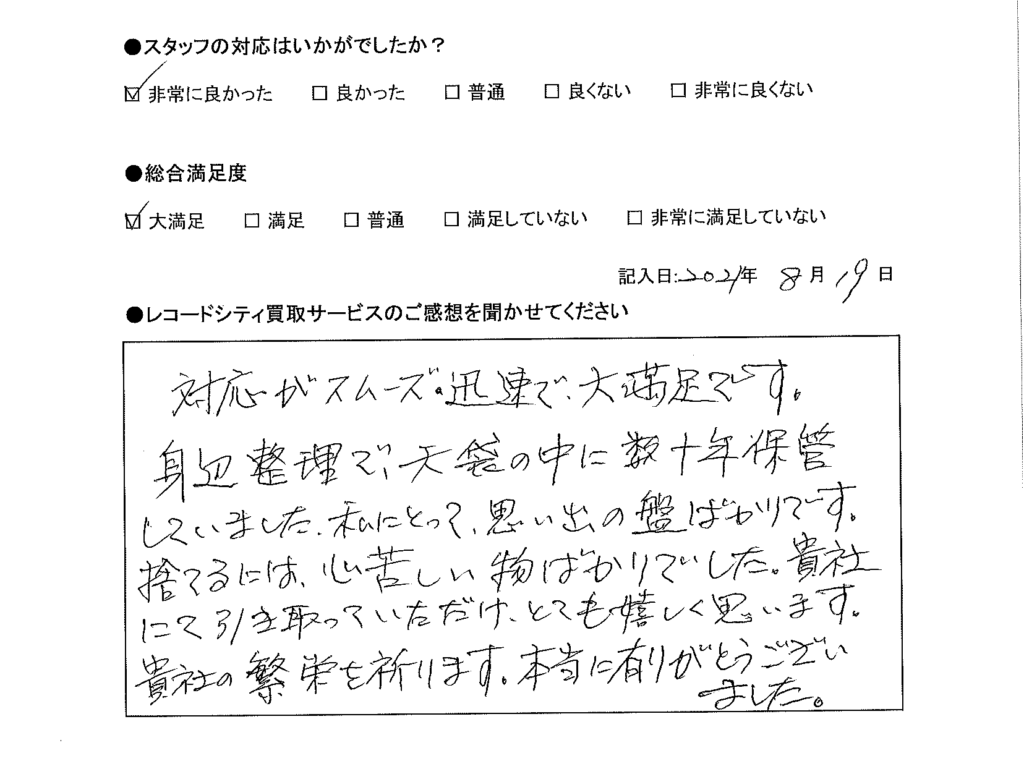 ●スタッフの対応はいかがでしたか？
☑ 非常に良かった □ 良かった □ 普通 □ 良くない □ 非常に良くない
●総合満足度
☑ 大満足 □ 満足 □ 普通 □ 満足していない □ 非常に満足していない
記入日:2021年 8月 19日
●レコードシティ買取サービスのご感想を聞かせてください
対応がスムーズ・迅速で、大満足です。
身辺整理で、天袋の中に数十年保管
していました。私にとって、思い出の盤ばかりです。
捨てるには、心苦しい物ばかりでした。貴社
にて引き取っていただけ、とても嬉しく思います。
貴社の繁栄を祈ります。本当に有りがとうござい
ました。